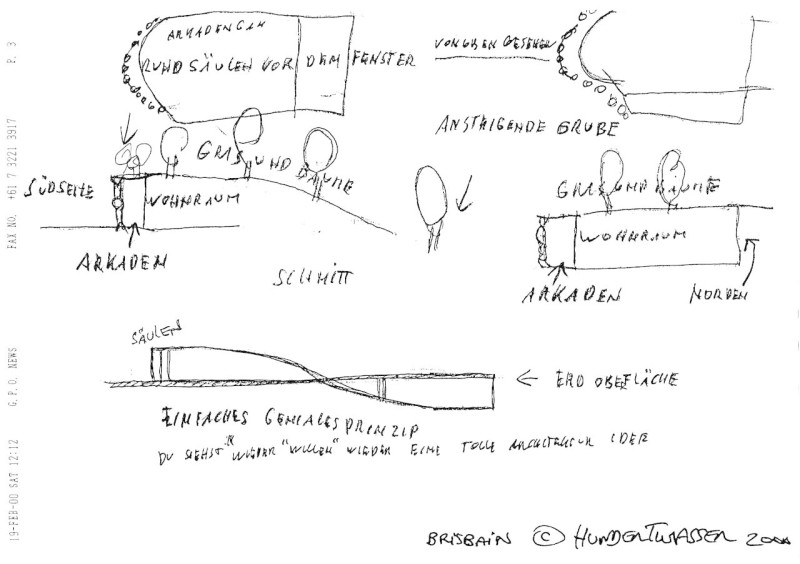 ARKADENGAN
RUND SÄULEN VOR DEM FENSTER
VON OBEN GESEHEN
ANSTEIGENDE GRUBE
GRAS UND BÄUME
SÜDSEITE
WOHNRAUM
ARKADEN
SCHNITT
GRAS UND BÄUME
WOHNRAUM
ARKADEN
NORDEN
SÄULEN
← ERD OBEFLÄCHE
EINFACHES GENIALES PRINZIP
DU SIEHST WIEDER "WILLEN" WIEDER EINE TOLLE ARCHITEKTUR IDEE
BRISBAIN © HUNDERTWASSER 2000
19-FEB-00 SAT 12:12 G.P.O. NEWS FAX NO. +61 7 3221 3917 P. 3